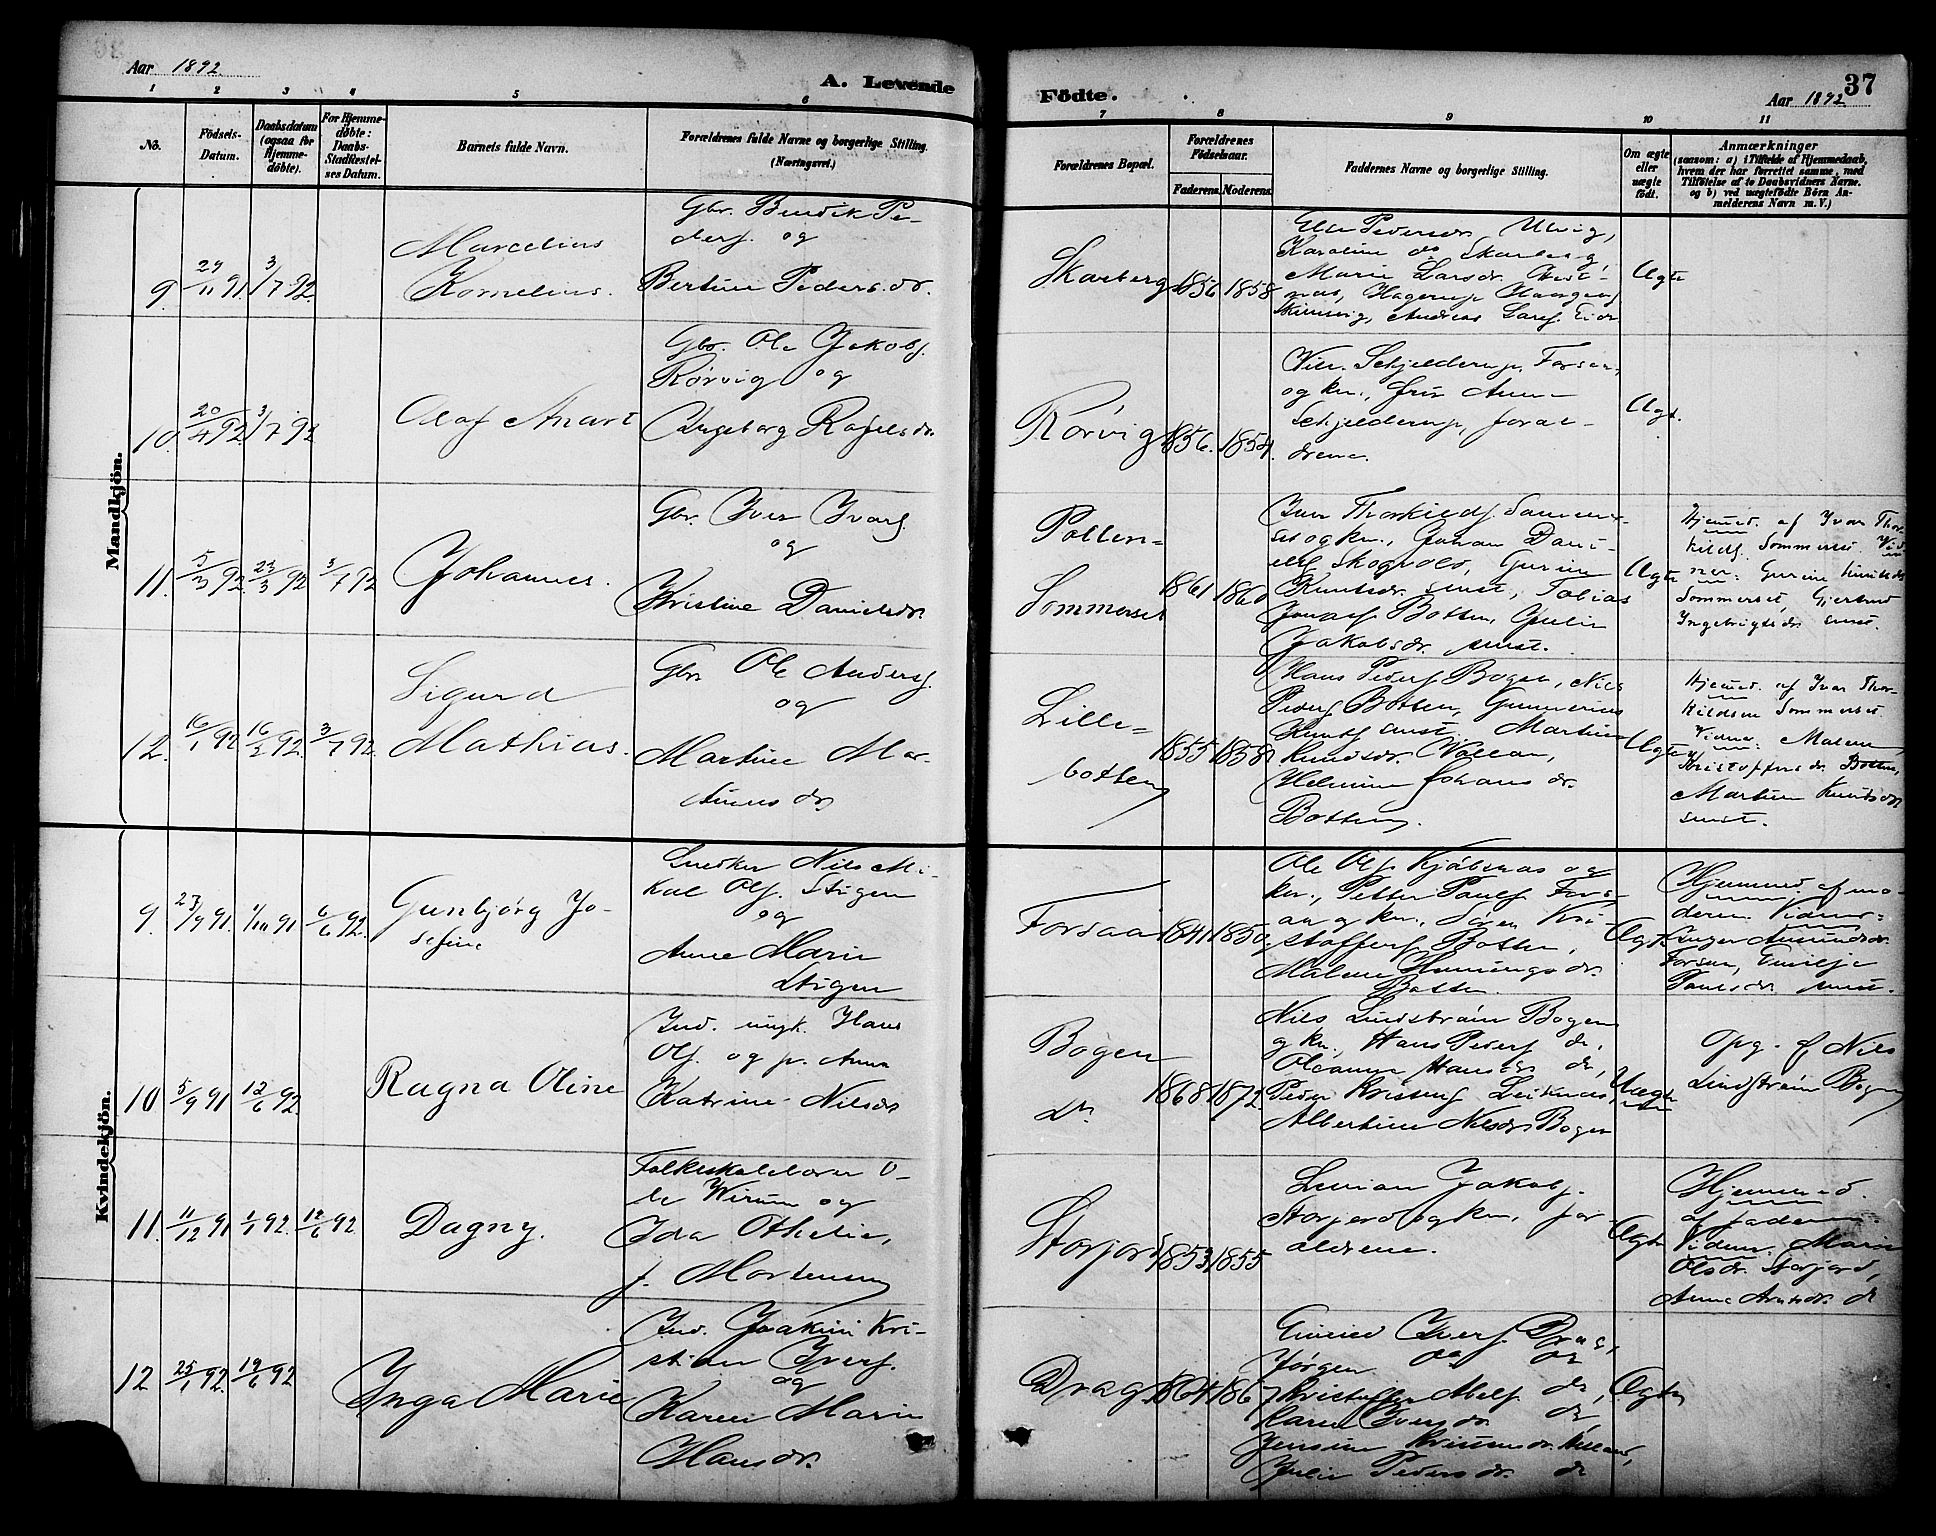 Aar 1892.
A. Levende
Födte.
37
Aar 1892
1 2 3 4 5 6
7 8 9 10 11
No.
Födsels-
Datum.
Daabsdatum
(ogsaa for
Hjemme-
døbte).
For Hjemme-
døbte:
Daabs-
Stadfæstel-
ses Datum.
Barnets fulde Navn.
Forældrenes fulde Navne og borgerlige Stilling.
(Næringsvei.)
Forældrenes Bopæl.
Forældrenes
Födselsaar.
Faderens. Moderens.
Faddernes Navne og borgerlige Stilling.
Om ægte
eller
uægte
født.
Anmærkninger
(saasom: a) i Tilfælde af Hjemmedaab,
hvem der har forrettet samme, med
Tilføielse af to Daabsvidners Navne.
og b) ved uægtefødte Børn An-
melderens Navn m. V.)
Mandkjön.
9. 29/11 91 3/7 92.
Marcelius
Kornelius.
Gbr. Bendik Pe-
ders. og
Bertine Pedersdr.
Skarberg 1856 1858
Pedersdr. Ulvig,
Karoline do Skarberg,
Marie Larsdr. Hest-
næs, Hagerup
Andreas Lars.
Ægte
10. 20/4 92 3/7 92
Olaf Anart
Gbr. Ole Jakobs.
Rørvig og
Ingeborg Rafelsdr.
Rørvig 1856. 1854.
Schjelderup, Forsaa,
og kn., frk Anna
Schjelderup, foræl-
drene.
Ægt.
11. 5/3 92 23/3 92 3/7 92
Johannes.
Gbr. Iver Ivars.
og
Kristine Danielsdr.
Pollen-
Sommerset 1861 1860
Iver Thorkilds. Sommer-
set og kn., Johan Dani-
els. Skogvold, Gurine
Knutsdr. smst., Tobias
Jonas. Botten, Julie
Jakobsdr. smst.
Ægte
Hjemmed. af Ivar Thor-
kilds. Sommerset. Vid-
ner: Gurine Knutsdr.
Sommerset, Gjertrud
Ingebrigtsdr. smst.
12. 16/1 92 16/2 92 3/7 92.
Sigurd
Mathias.
Gbr. Ole Anders.
og
Martine Mar-
tinusdr
Lille-
botten 1855 1858
Hans Peders. Bogen, Nils
Peders. Botten, Gunnerius
Knuts. smst. Martine
Knudsdr.
Helmine Johansdr.
Botten.
Ægte
Hjemmed. af Ivar Thor-
kildsen Sommerset.
Vidner: Malene
Kristoffersdr. Botten,
Martine Knutsdr
smst.
Kvindekjön.
9. 23/9 91 1/10 91 6/6 92.
Gunbjørg Jo-
sefine
Snedker Nils Mi-
kal Ols. Stigen
og
Anne Marie
Stigen
Forsaa 1841 1850
Ole Ols. Kjøbsnæs og
kn., Petter Pauls. Fors-
aa og kn., Søren Kri-
stoffers. Botten,
Malene Hemmingsdr.
Botten.
Ægte
Hjemmed. af mo-
deren. Vidner:
Inger Amundsdr.
Forsaa, Emilje
Paulsdr. smst.
10 5/9 91 12/6 92.
Ragna Oline
Ind. ungk. Hans
Ols. og p. Anna
Katrine Nilsdr
Bogen
do. 1868 1872
Nils Lindstrøm Bogen
og kn., Hans Peders. do,
Oleanna Hansdr. do,
Peder Kristens. Leiknes,
Albertine Nilsdr Bogen
Uægte
Opg. af Nils
Lindstrøm Bogen
11. 11/12 91 1/1 92. 12/6 92.
Dagny.
Folkeskolelærer O-
le Wirum og
Ida Othelie,
f. Mortensen
Storjord 1853 1855
Jakobs.
Storjord og kn., for-
ældrene.
Ægte
Hjemmed.
af faderen.
Vidner. Marie
Olsdr. Storjord,
Anne Arntsdr. do
12 25/1 92. 19/6 92
Inga Marie
Ind. Joakim Kri-
stian Ivers.
og
Karen Marie
Hansdr.
Drag. 1864 1867
Ivers. Drag,
Jørgen do do
Kristoffer Abels. do,
Karen Iversdr do,
Jensine Kristensdr.
Julie Pedersdr. do
Ægte